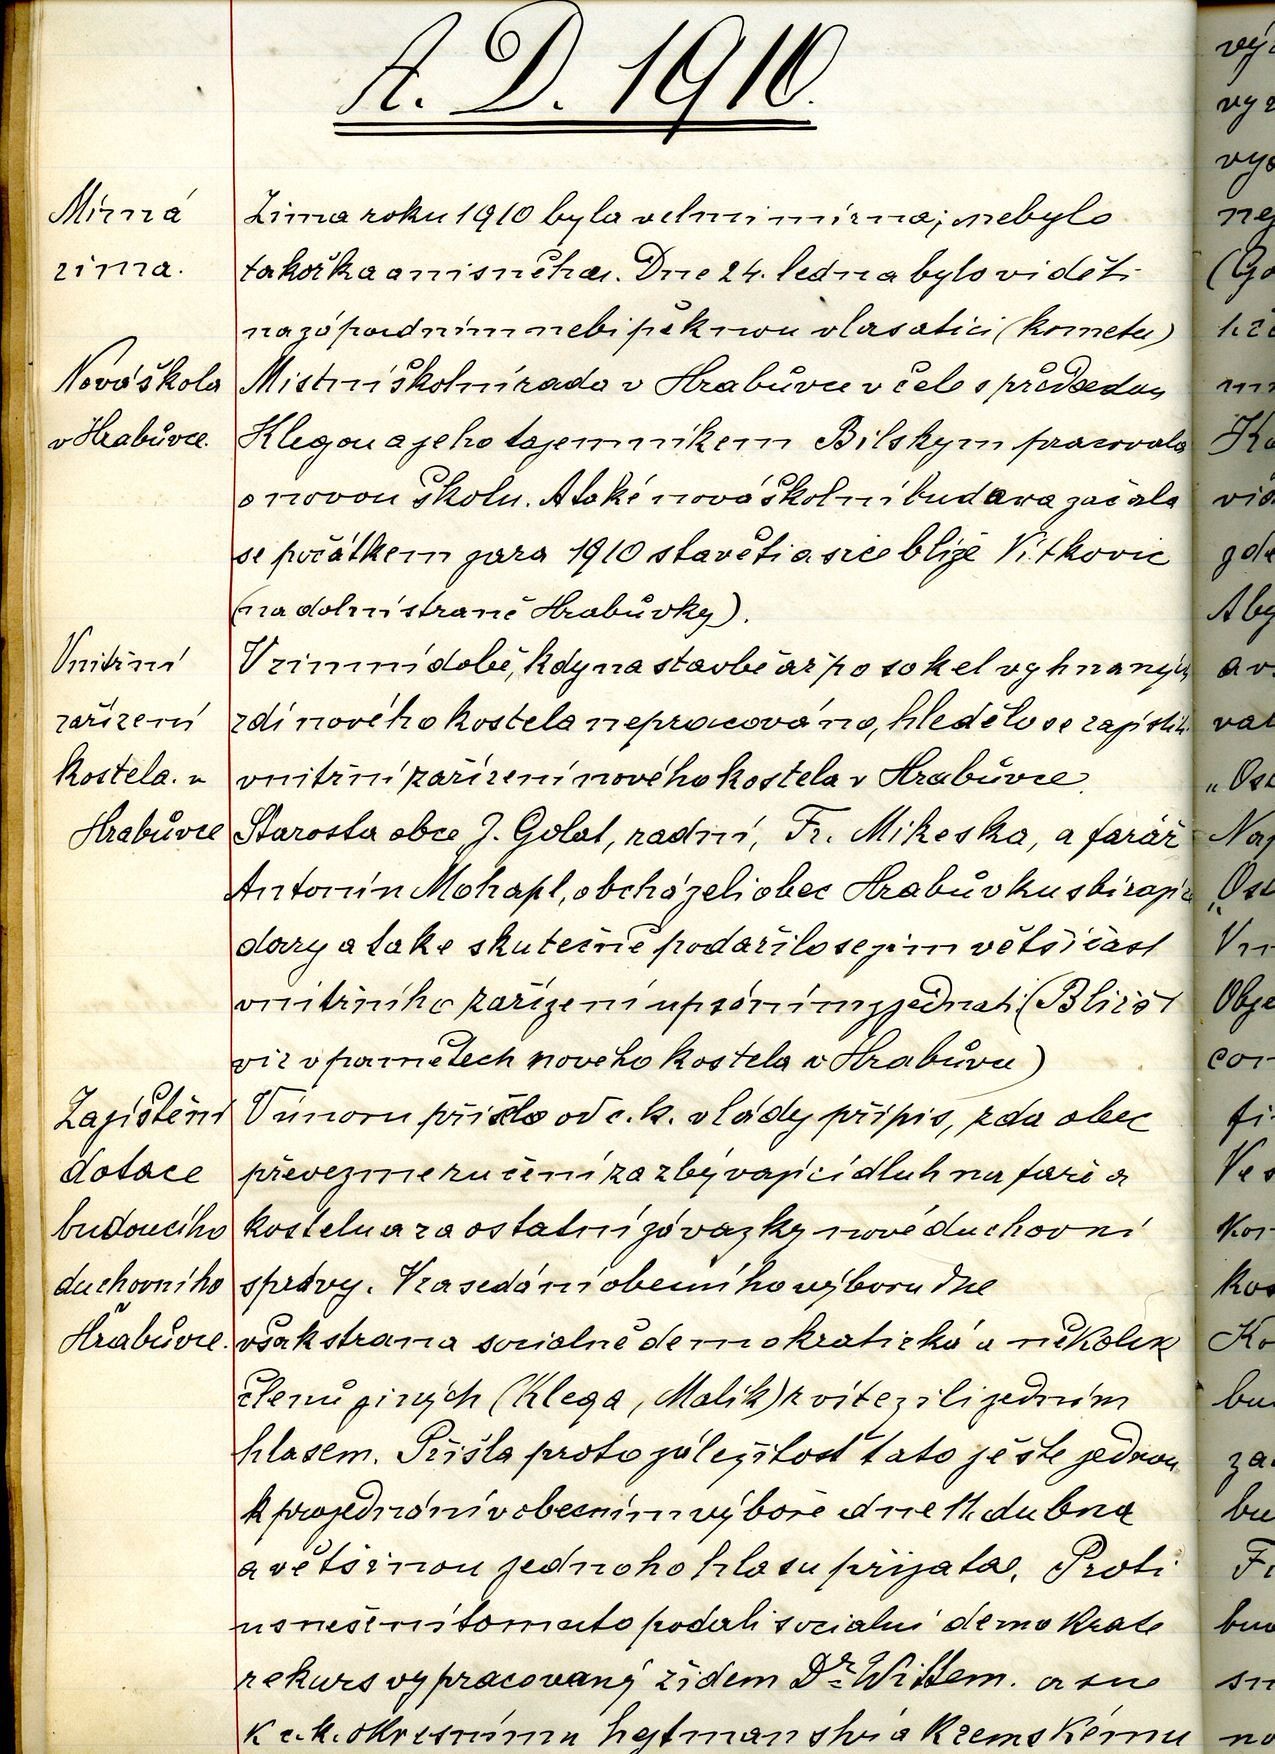 A. D. 1910.
Mírná
zima.
Zima roku 1910 byla velmi mírna; nebylo
takořka ani sněha. Dne 24. ledna bylo viděti
na západním nebi pěknou vlasatici (kometu)
Nová škola
v Hrabůvce.
Mistní školní rada v Hrabůvce v čele s předsedou
Klegou a jeho tajemníkem Bilskym pracovala
o novou školu. A také nová školní budova začala
se počátkem jara 1910 stavěti a sice blíže Vítkovic
(na dolní straně Hrabůvky).
Vnitřní
zařízení
kostela. v
Hrabůvce
V zimní době, kdy na stavbě až po sokel vyhnaných
zdí nového kostela nepracováno, hledělo se zajistiti
vnitřní zařízení nového kostela v Hrabůvce.
Starosta obce J. Golat, radní, Fr. Mikeska, a farář
Antonín Mohapl, obcházeli obec Hrabůvku sbírajíce
dary a take skutečně podařilo se jim větší část
vnitřního zařízení upsáním zjednati (Bližší
viz v pamětech nového kostela v Hrabůvce)
Zajištění
dotace
budoucího
duchovního
v Hrabůvce.
V únoru přišlo od c. k. vlády přípis, zda obec
převezme ručení za zbývající dluh na faře a
kostelu a za ostatní závazky nové duchovní
správy. V zasedání obecního výboru dne
však strana socialně demokratická a několik
členů jiných (Klega, Malík) zvítezili jedním
hlasem. Přišla proto záležitost tato ješte jednou
k projednání v obecním výboře dne 11. dubna
a většinou jednoho hlasu přijata. Proti
usnešení tomuto podali socialní demokraté
rekurs vypracovaný židem Dr. Wittem.
k c. k. okresnímu hejtmanství a k zemskému